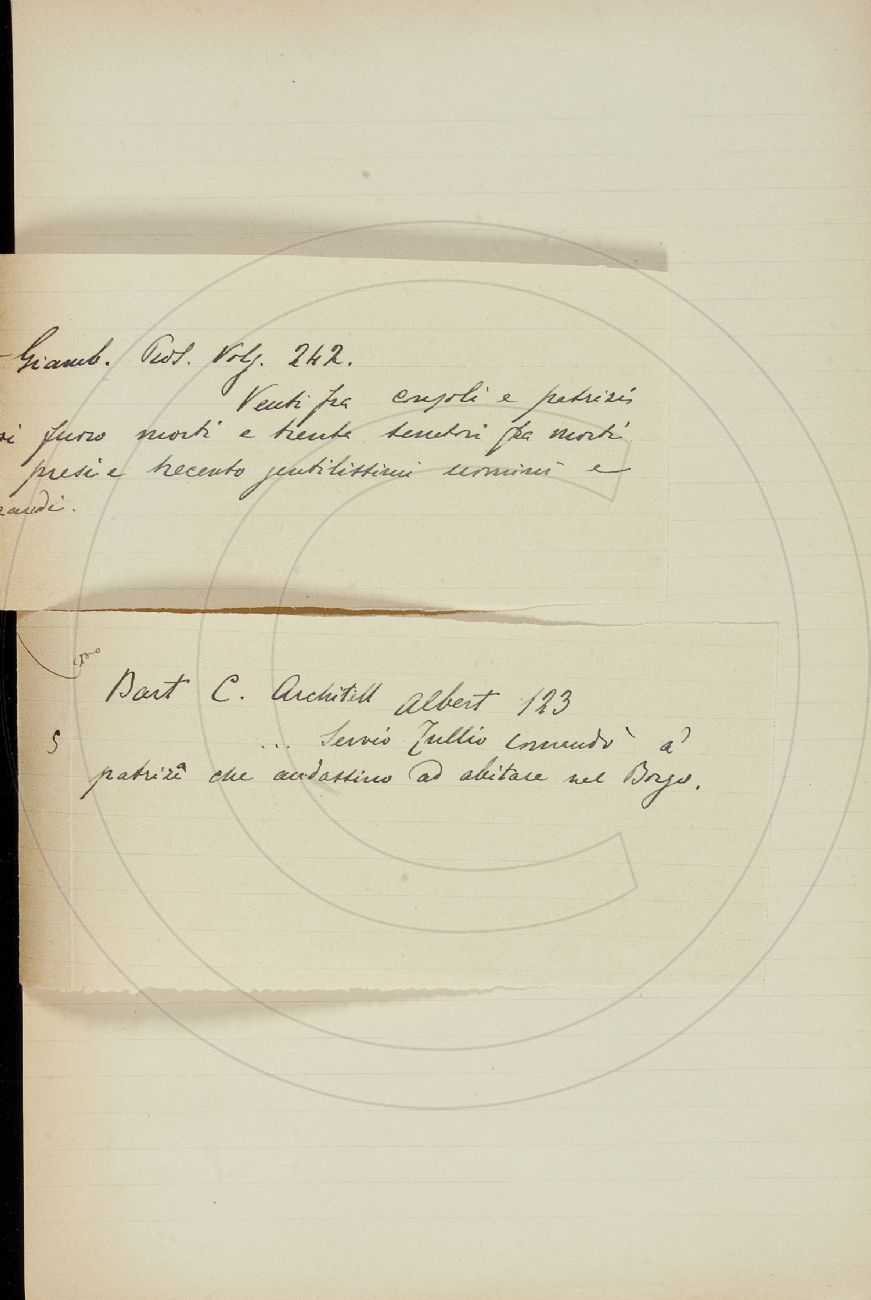 Giamb. Volg. 242.
Venti fra consoli e patrizi
ri furo morti e trenta senatori fra morti
presi e trecento gentilissimi uomini e
randi.
Bart C. Architett Albert 123
5 ... Servio Tullio comandò a'
patrizi che andassino ad abitare nel Borgo.